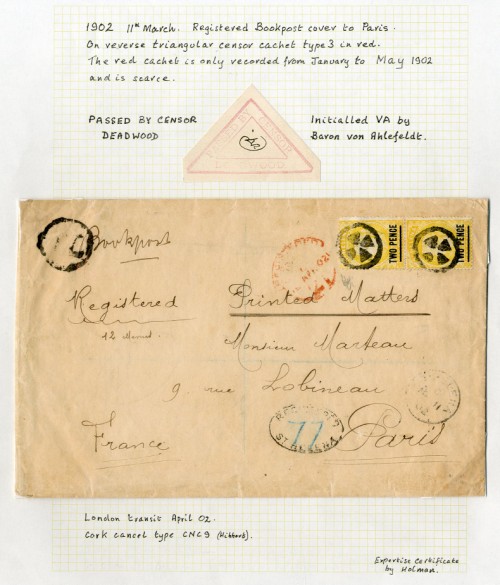 1902 11th March. Registered Bookpost cover to Paris.
On reverse triangular censor cachet type 3 in red.
The red cachet is only recorded from January to May 1902
and is scarce.
PASSED BY CENSOR
DEADWOOD
PASSED BY CENSOR
DEADWOOD
VA
Initialled VA by
Baron von Ahlefeldt.
Bookpost
TWO PENCE
TWO PENCE
Registered
Printed Matters
Monsieur Marteau
9. rue Lobineau
REGISTERED
77
ST HELENA
Paris
France
London transit April 02.
Cork cancel type CNC9 (Hibbert).
Expertise Certificate
by Holman.